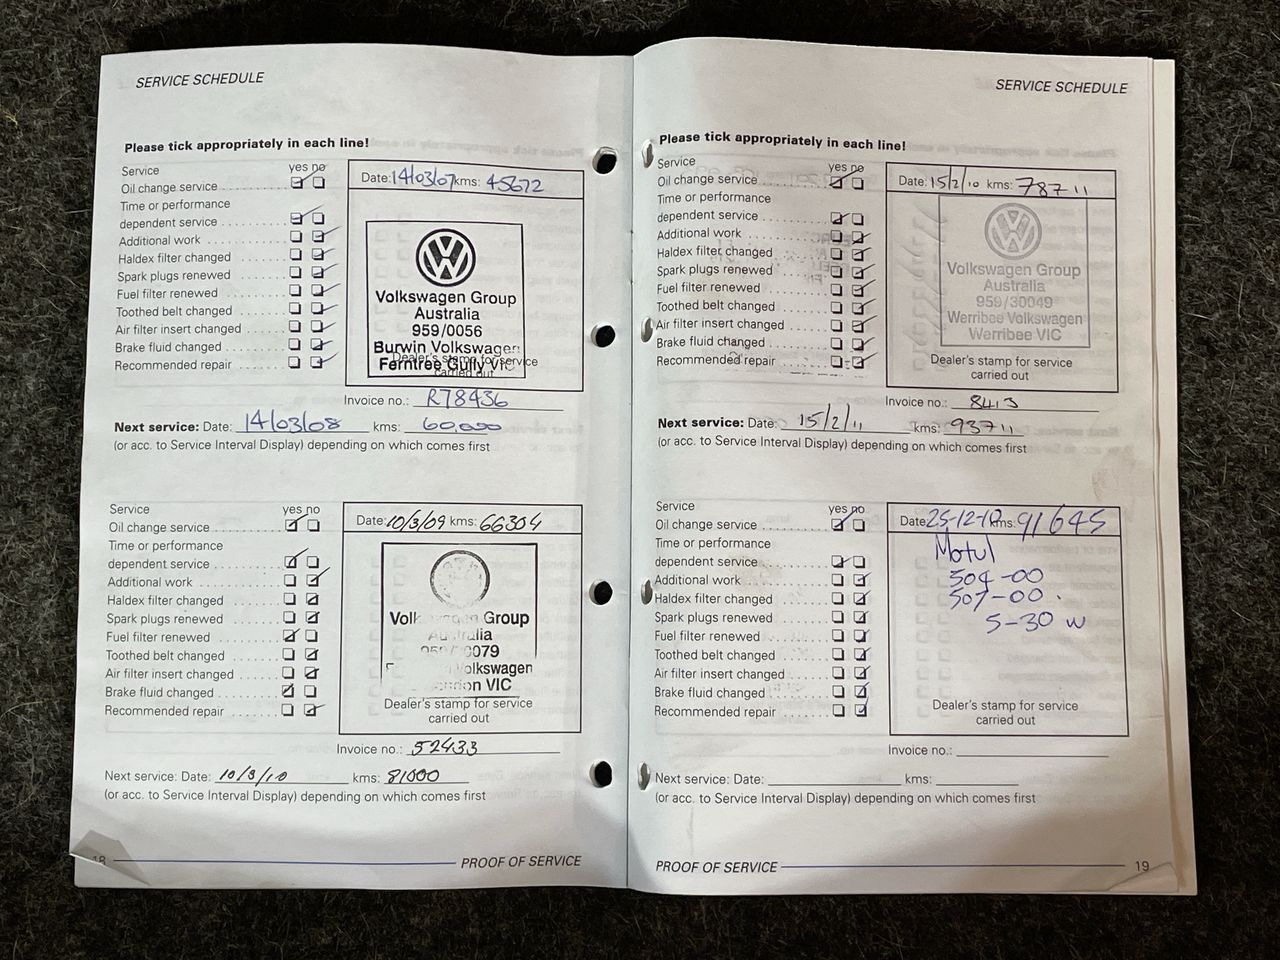 SERVICE SCHEDULE
Please tick appropriately in each line!
Service
yes no
Oil change service
Time or performance
dependent service
Additional work
Haldex filter changed
Spark plugs renewed
Fuel filter renewed
Toothed belt changed
Air filter insert changed
Brake fluid changed
Recommended repair
Date: 14/03/07 kms: 45672
Volkswagen Group
Australia
959/0056
Burwin Volkswagen
Ferntree Gully VIC
Dealer's stamp for service
carried out
Invoice no.: R78436
Next service: Date: 14/03/08 kms: 60,000
(or acc. to Service Interval Display) depending on which comes first
Service
yes no
Oil change service
Time or performance
dependent service
Additional work
Haldex filter changed
Spark plugs renewed
Fuel filter renewed
Toothed belt changed
Air filter insert changed
Brake fluid changed
Recommended repair
Date: 10/3/09 kms: 66304
Group
Australia
Volkswagen
VIC
Dealer's stamp for service
carried out
Invoice no.: 52433
Next service: Date: 10/3/10 kms: 81000
(or acc. to Service Interval Display) depending on which comes first
18 PROOF OF SERVICE
SERVICE SCHEDULE
Please tick appropriately in each line!
Service
yes no
Oil change service
Time or performance
dependent service
Additional work
Haldex filter changed
Spark plugs renewed
Fuel filter renewed
Toothed belt changed
Air filter insert changed
Brake fluid changed
Recommended repair
Date: 15/2/10 kms: 78711
Volkswagen Group
Australia
959/30049
Werribee Volkswagen
Werribee VIC
Dealer's stamp for service
carried out
Invoice no.: 8413
Next service: Date: 15/2/11 kms: 93711
(or acc. to Service Interval Display) depending on which comes first
Service
yes no
Oil change service
Time or performance
dependent service
Additional work
Haldex filter changed
Spark plugs renewed
Fuel filter renewed
Toothed belt changed
Air filter insert changed
Brake fluid changed
Recommended repair
Date: 25-12-10 kms: 91645
Motul
504-00
507-00.
5-30 w
Dealer's stamp for service
carried out
Invoice no.:
Next service: Date: kms:
(or acc. to Service Interval Display) depending on which comes first
PROOF OF SERVICE 19